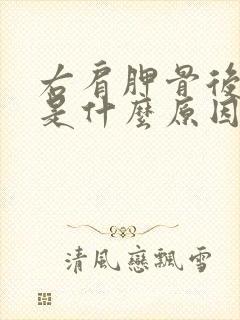 右肩胛骨後
是什麼原因
清風戀飄雪